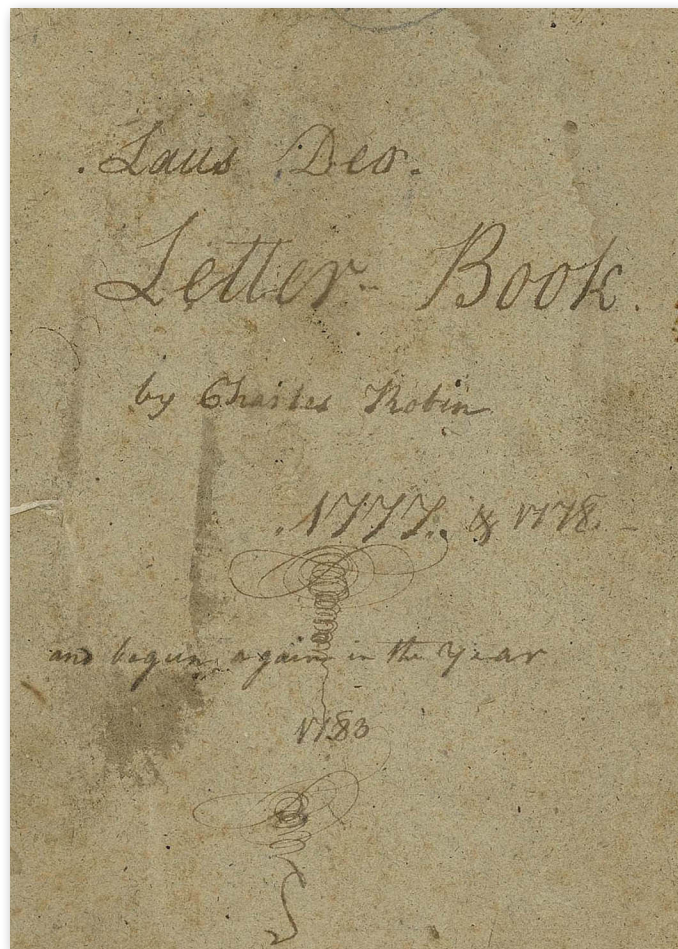 . Laus Deo.
Letter Book.
by Charles Robin
. 1777. & 1778. -
and begun again in the Year
1783